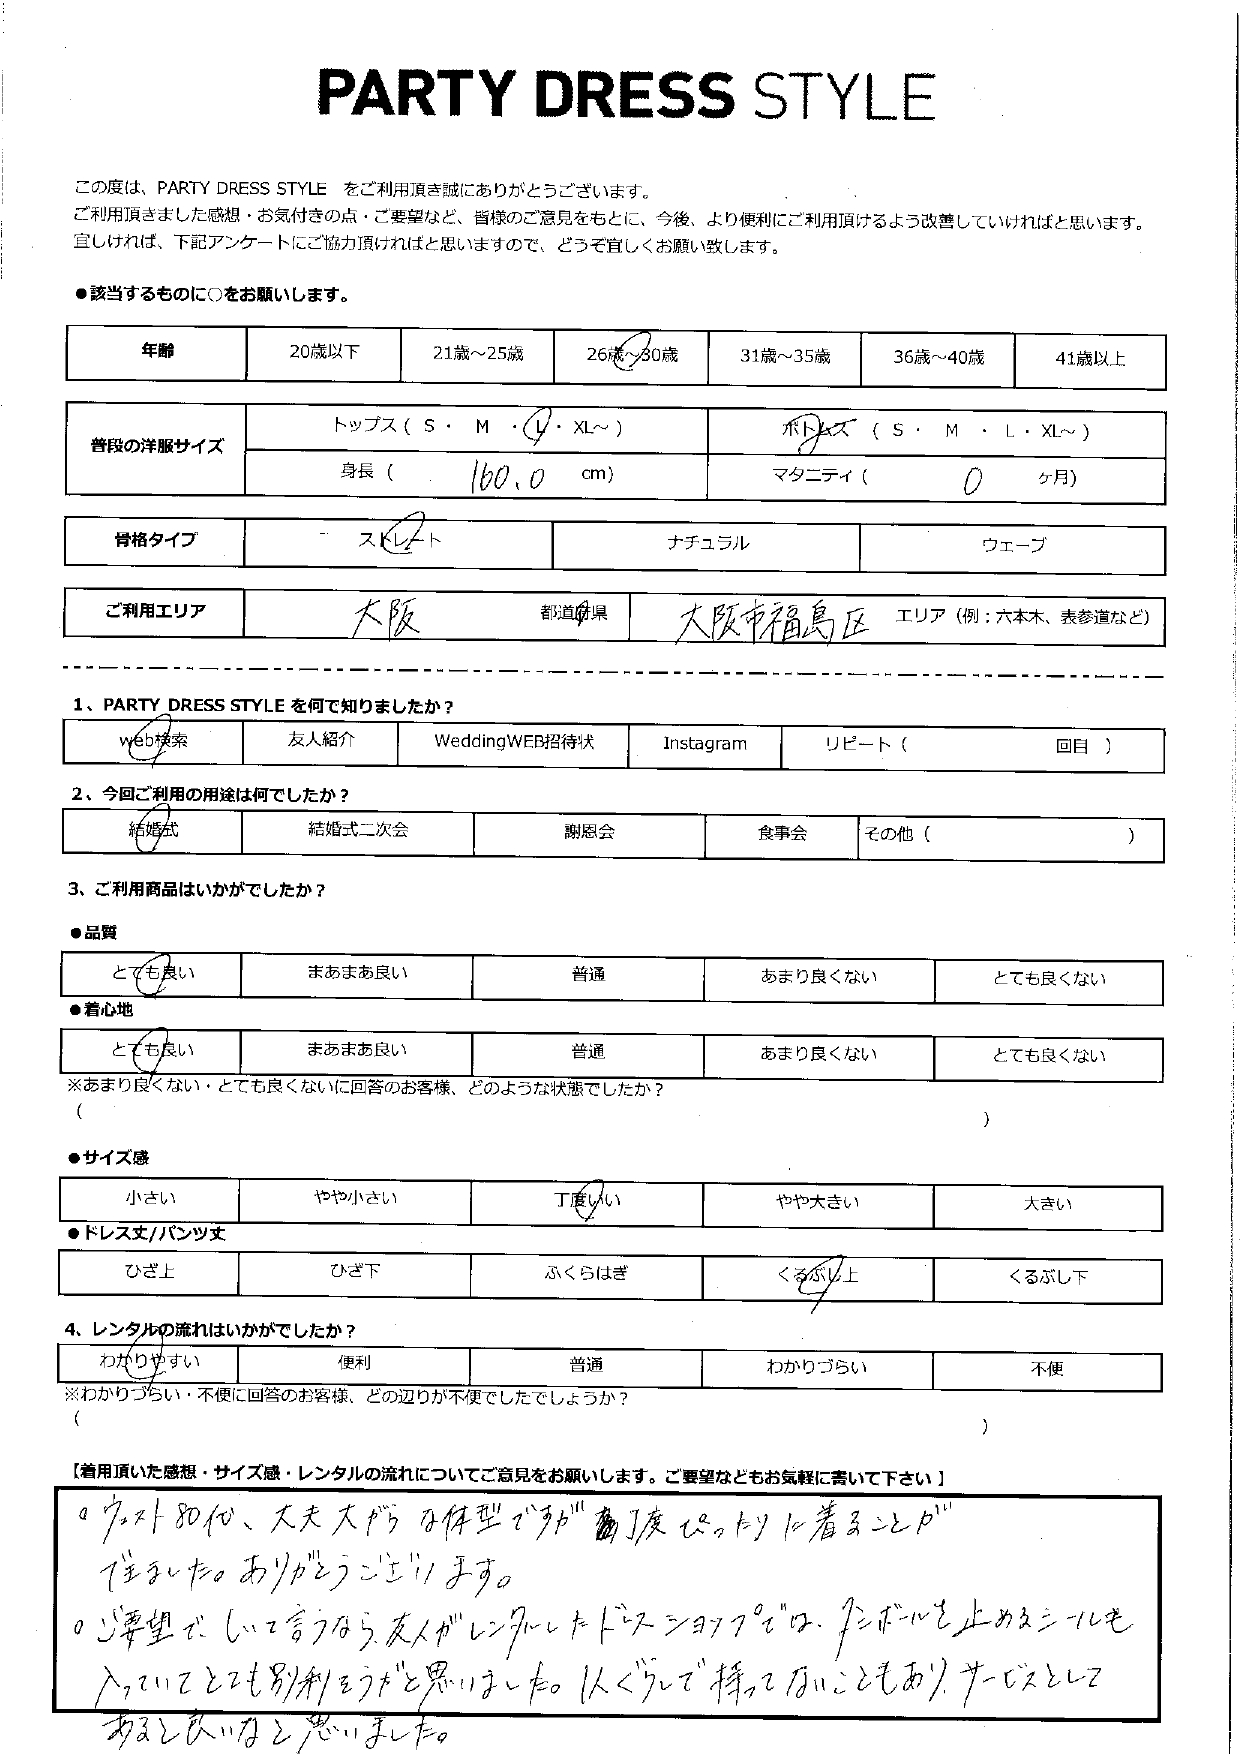 PARTY DRESS STYLE
この度は、PARTY DRESS STYLE をご利用頂き誠にありがとうございます。
ご利用頂きました感想・お気付きの点・ご要望など、皆様のご意見をもとに、今後、より便利にご利用頂けるよう改善していければと思います。
宜しければ、下記アンケートにご協力頂ければと思いますので、どうぞ宜しくお願い致します。
●該当するものに○をお願いします。
年齢 20歳以下 21歳～25歳 26歳～30歳 31歳～35歳 36歳～40歳 41歳以上
普段の洋服サイズ
トップス ( S ・ M ・ L ・ XL～ ) ボトムス ( S ・ M ・ L ・ XL～ )
身長 ( 160.0 cm) マタニティ ( 0 ヶ月)
骨格タイプ ストレート ナチュラル ウェーブ
ご利用エリア 大阪 都道府県 大阪市福島区 エリア (例：六本木、表参道など)
1、PARTY DRESS STYLE を何で知りましたか？
web検索 友人紹介 WeddingWEB招待状 Instagram リピート ( 回目 )
2、今回ご利用の用途は何でしたか？
結婚式 結婚式二次会 謝恩会 食事会 その他 ( )
3、ご利用商品はいかがでしたか？
●品質
とても良い まあまあ良い 普通 あまり良くない とても良くない
●着心地
とても良い まあまあ良い 普通 あまり良くない とても良くない
※あまり良くない・とても良くないに回答のお客様、どのような状態でしたか？
( )
●サイズ感
小さい やや小さい 丁度いい やや大きい 大きい
●ドレス丈/パンツ丈
ひざ上 ひざ下 ふくらはぎ くるぶし上 くるぶし下
4、レンタルの流れはいかがでしたか？
わかりやすい 便利 普通 わかりづらい 不便
※わかりづらい・不便に回答のお客様、どの辺りが不便でしたでしょうか？
( )
【着用頂いた感想・サイズ感・レンタルの流れについてご意見をお願いします。ご要望などもお気軽に書いて下さい 】
○ウエスト80代、大夫大がらな体型ですが 丁度ぴったりに着ることが
できました。ありがとうございます。
○ご要望で、しいて言うなら、友人がレンタルしたドレスショップでは、ダンボールを止めるシールも
入っていてとても便利そうだと思いました。1人ぐらしで持ってないこともあり、サービスとして
あると良いなと思いました。